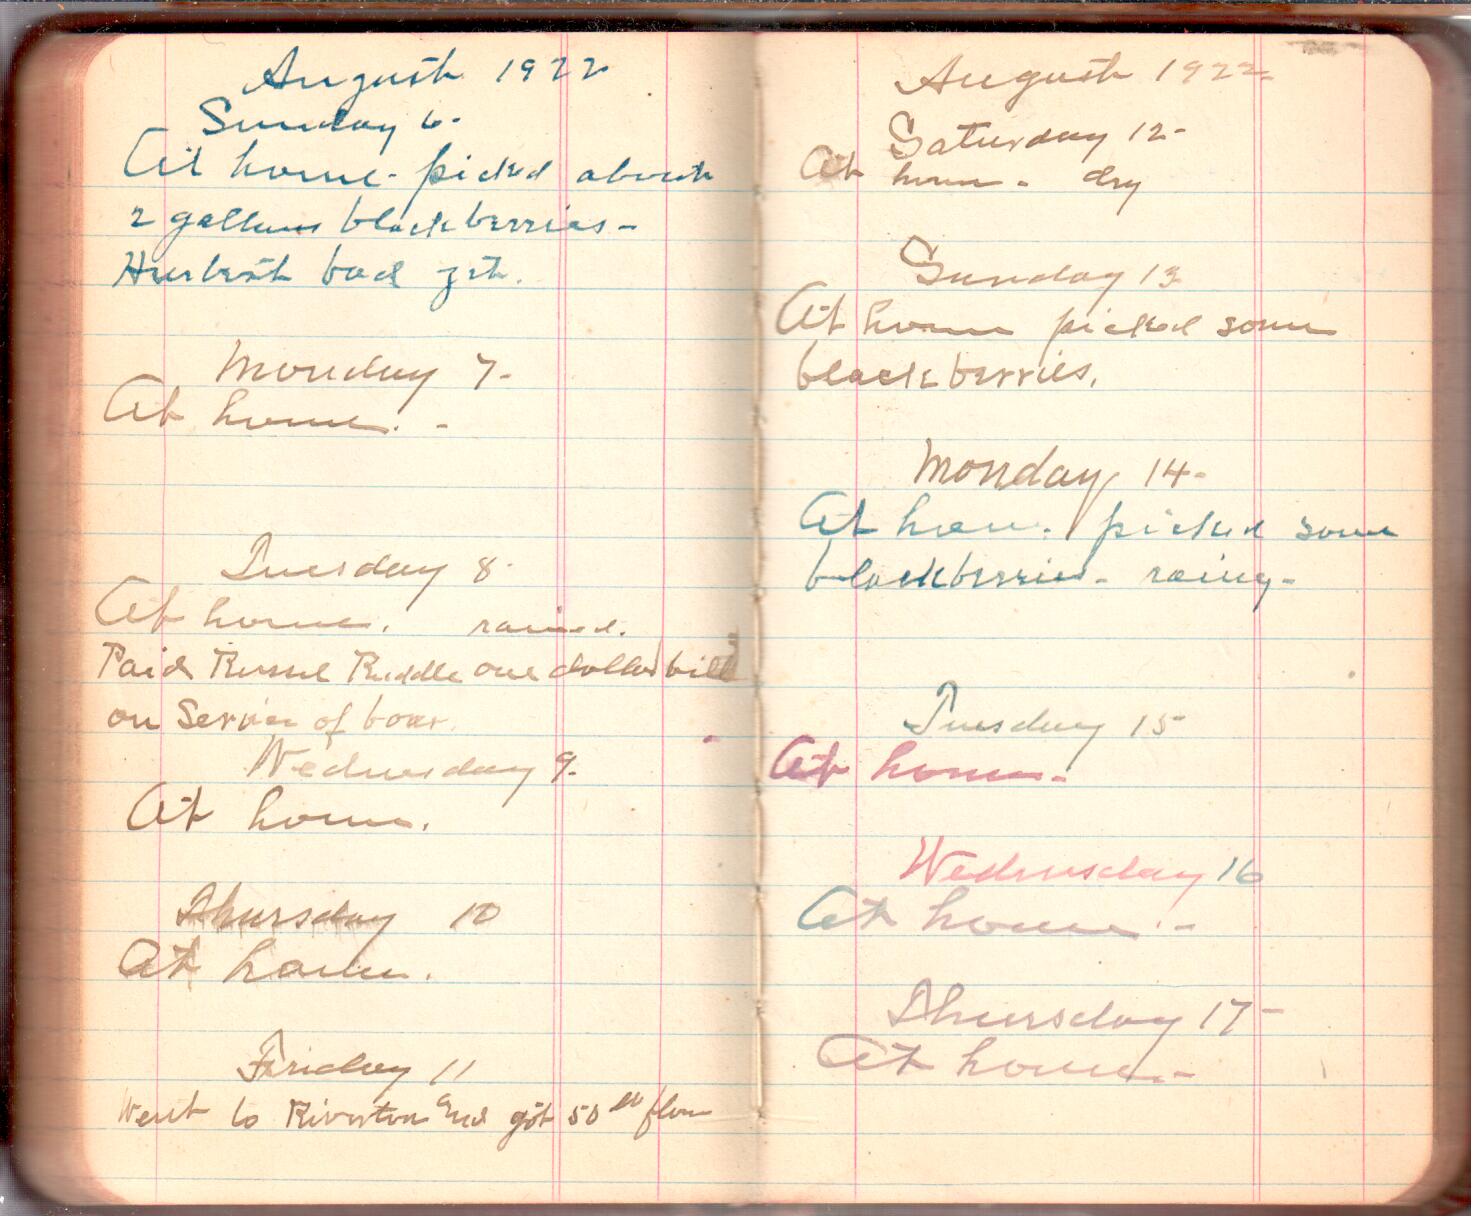 August 1922
Sunday 6-
At home- picked about
2 gallons blackberries-
bad yet.
Monday 7-
At home. -
Tuesday 8-
At home. rained.
Paid Russel Riddle one dollar bill
on Service of boar.
Wednesday 9-
At home.
Thursday 10
At home.
Friday 11
Went to Riverton and got 50 lb flour
August 1922
Saturday 12-
At home- dry
Sunday 13
At home picked some
blackberries.
Monday 14-
At home. picked some
blackberries- rainy-
Tuesday 15
At home-
Wednesday 16
At home.-
Thursday 17-
At home.-